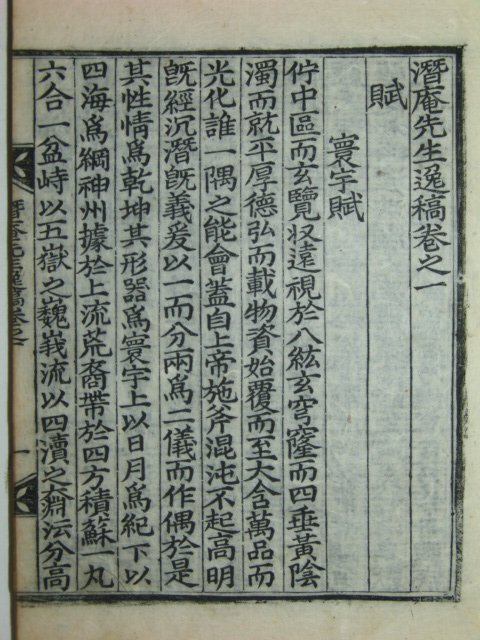 潛庵先生逸稿卷之一
賦
寰宇賦
佇中區而玄覽収遠視於八紘玄穹窿而四垂黃陰
濁而就平厚德弘而載物資始覆而至大含萬品而
光化誰一隅之能會蓋自上帝施斧混沌不起高明
旣經沉潛旣義爰以一而分兩爲二儀而作偶於是
其性情爲乾坤其形器爲寰宇上以日月爲紀下以
四海爲綱神州據於上流荒裔帶於四方積蘇一丸
六合一盆峙以五嶽之巍峩流以四瀆之淵沄分高